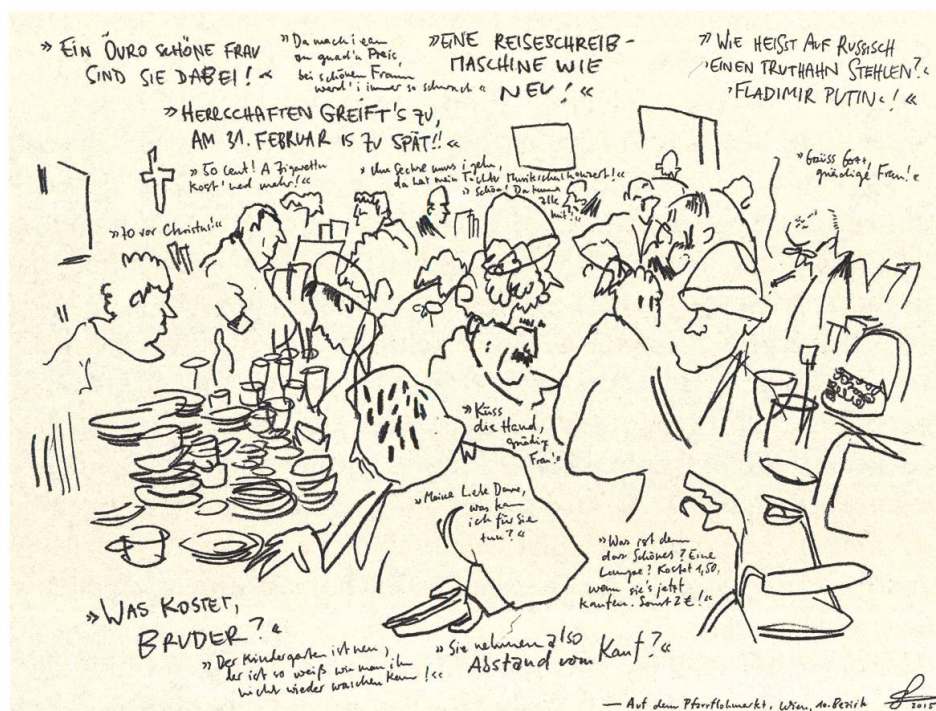 »EIN ÖURO SCHÖNE FRAU
SIND SIE DABEI!«
»Da mach i ean
an guad'n Preis,
bei schönen Frauen
werd' i immer so schwach«
»EINE REISESCHREIB-
MASCHINE WIE
NEU!«
»WIE HEISST AUF RUSSISCH
›EINEN TRUTHAHN STEHLEN?‹
›FLADIMIR PUTIN‹!«
»HERRSCHAFTEN GREIFT'S ZU,
AM 31. FEBRUAR IS ZU SPÄT!!«
»50 Cent! A Zigrettn
kost' ned mehr!«
Sechse muss i gehn,
da hat mein Tochter Musikschulkonzert!«
»Schön! Da kumma
alle
mit!«
»Grüss Gott,
gnädige Frau!«
»70 vor Christus!«
»Küss
die Hand,
gnädige
Frau!«
»Meine Liebe Dame,
was kann
ich für Sie
tun?«
»Was ist denn
das Schönes? Eine
Lampe? Kostet 1,50,
wenn sie's jetzt
kaufen. Sonst 2€!«
»WAS KOSTET,
BRUDER?«
»Der Kindergarten ist neu,
der ist so weiß wie man ihn
nicht wieder waschen kann!«
»Sie nehmen also
Abstand vom Kauf?«
— Auf dem Pfarrflohmarkt, Wien, 10. Bezirk
2015